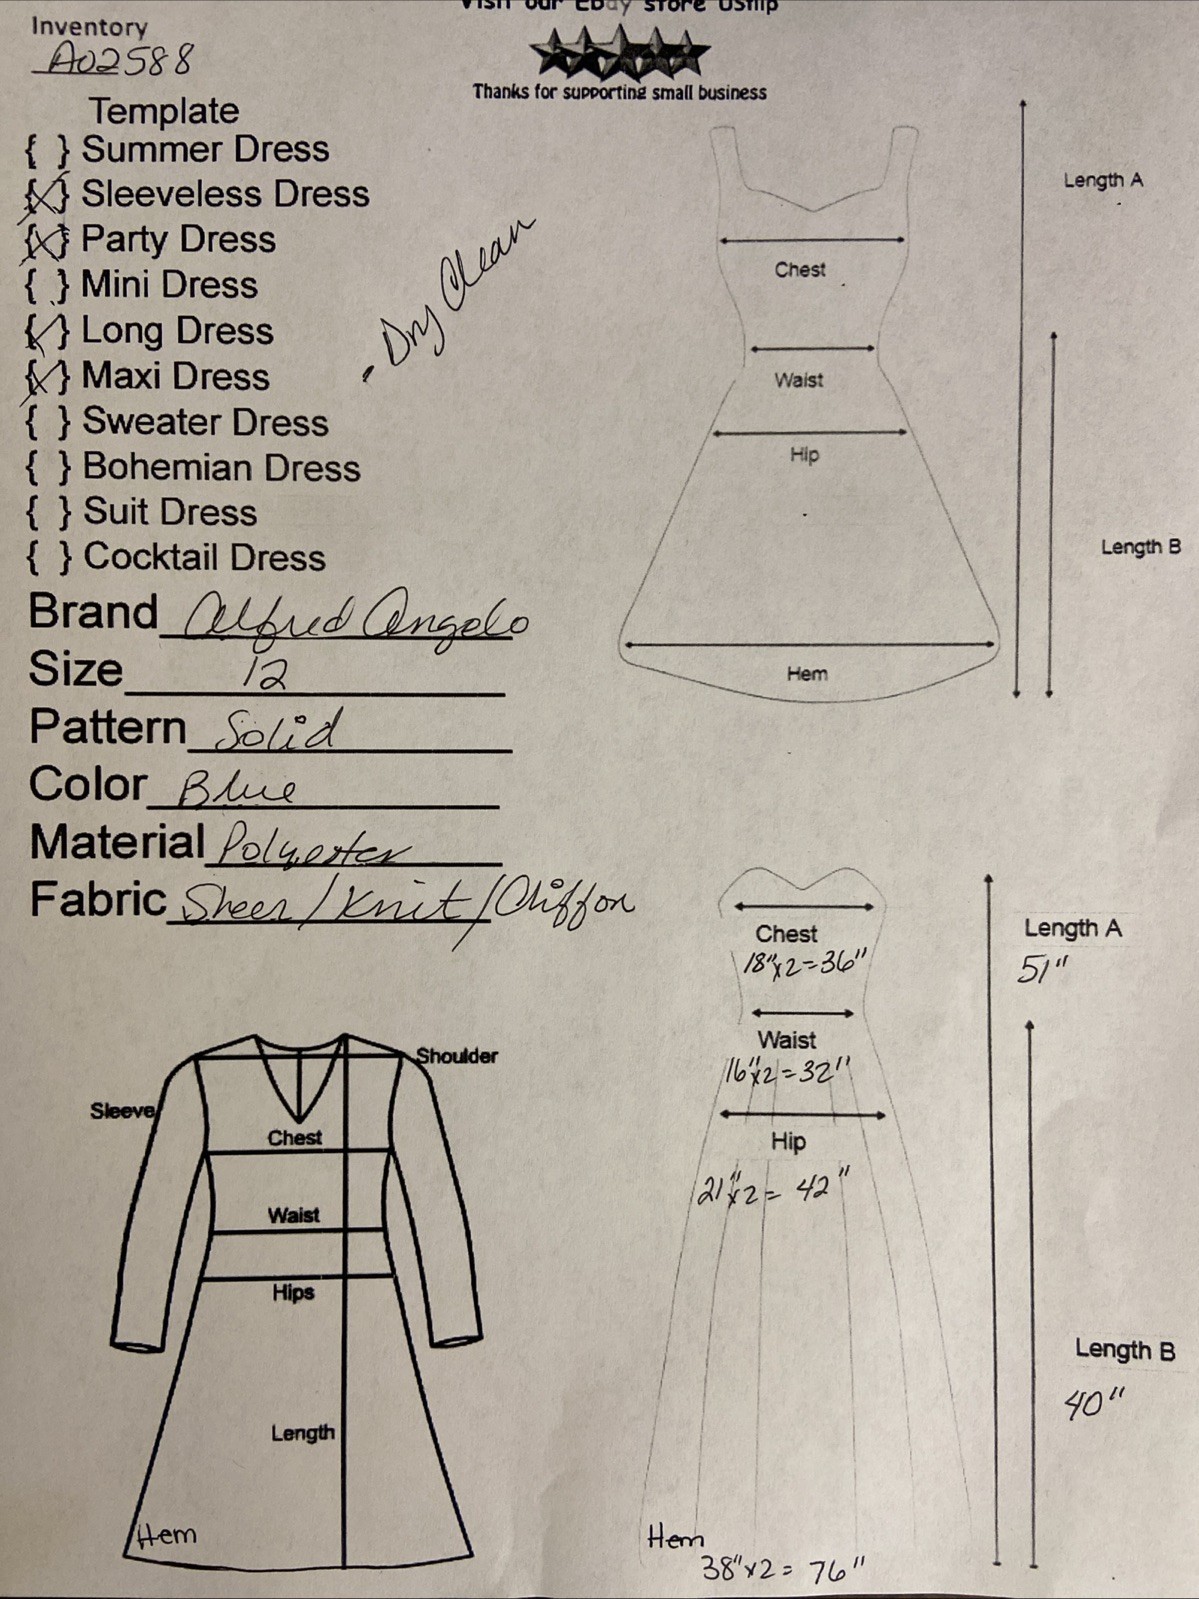 Visit our EBay store USflip
Thanks for supporting small business
Inventory
A02588
Template
{ } Summer Dress
{X} Sleeveless Dress
{X} Party Dress
{ } Mini Dress
{X} Long Dress
{X} Maxi Dress
{ } Sweater Dress
{ } Bohemian Dress
{ } Suit Dress
{ } Cocktail Dress
- Dry Clean
Brand Alfred Angelo
Size 12
Pattern Solid
Color Blue
Material Polyester
Fabric Sheer/Knit/Chiffon
Length A
Chest
Waist
Hip
Length B
Hem
Shoulder
Sleeve
Chest
Waist
Hips
Length
Hem
Chest
18"x2=36"
Waist
16"x2=32"
Hip
21"x2= 42"
Length A
51"
Length B
40"
Hem
38"x2= 76"